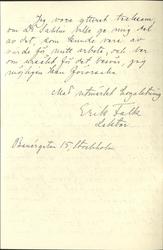 Jag vore ytterst tacksam
om Dr Dahlin ville ge mig del
av det, som kunde vara av
värde för mitt arbete, och ber
om ursäkt för det besvär, jag
möjligen kan förorsaka.
Med utmärkt högaktning
Erik Falk
lektor
Banérgatan 15 Stockholm